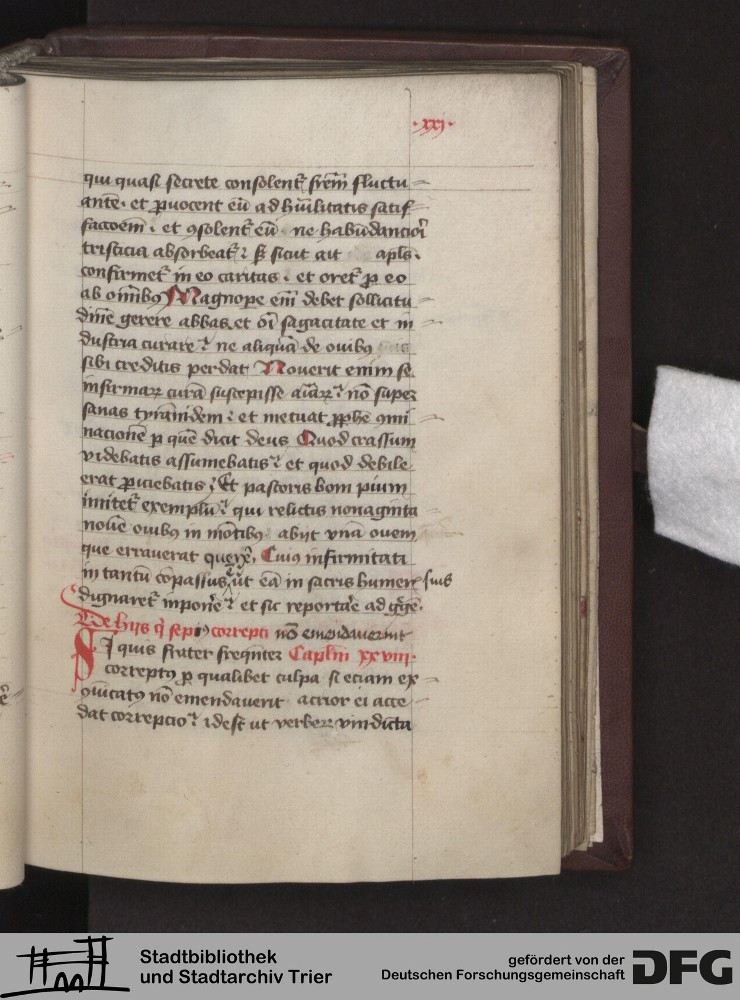 ·xxj·
qui quasi secrete consolent᷑ fr̄em fluctu
antē · et ꝓuocent eū ad hūilitatis satisf
faccōem · et ꝯsolent᷑ eū · ne habūdanciori
tristicia absorbeat᷑ : sꝫ sicut ait apl̄s ·
confirmet᷑ in eo caritas · et oret᷑ ꝓ eo
ab om̄ibꝫ Magnope em̄ debet sollicitu
dinē gerere abbas et oī sagacitate et in
dustria curare : ne aliquā de ouibꝫ
sibi creditis perdat Nouerit enim se
infirmaꝝ curā suscepisse aīaꝝ : nō super
sanas tyrānidem : et metuat ꝓphē ꝯmi
nacionē ꝑ quē dicit deus Quod crassum
videbatis assumebatis : et quod debile
erat ꝓiciebatis ; Et pastoris boni pium
imitet᷑ exemplū : qui relictis nonaginta
nouē ouibꝫ in mōtibꝫ · abijt vnā ouem
que errauerat querē᷑ , Cuiꝰ infirmitati
in tantū cōpassus ē ut eā in sacris humeris suis
dignaret᷑ inponē᷑ : et sic reportāe ad gͤgē ·
De hijs q̄ sepiꝰ correpti nō emendauerint
Si quis frater freqn̄ter Caplm̄ xxviii·
correptꝰ ꝑ qualibet culpa si eciam ex
ꝯīcatꝰ nō emendauerit acrior ei acce
dat correpcio : idest ut verberꝝ vindicta
Stadtbibliothek
und Stadtarchiv Trier
gefördert von der
Deutschen Forschungsgemeinschaft
DFG